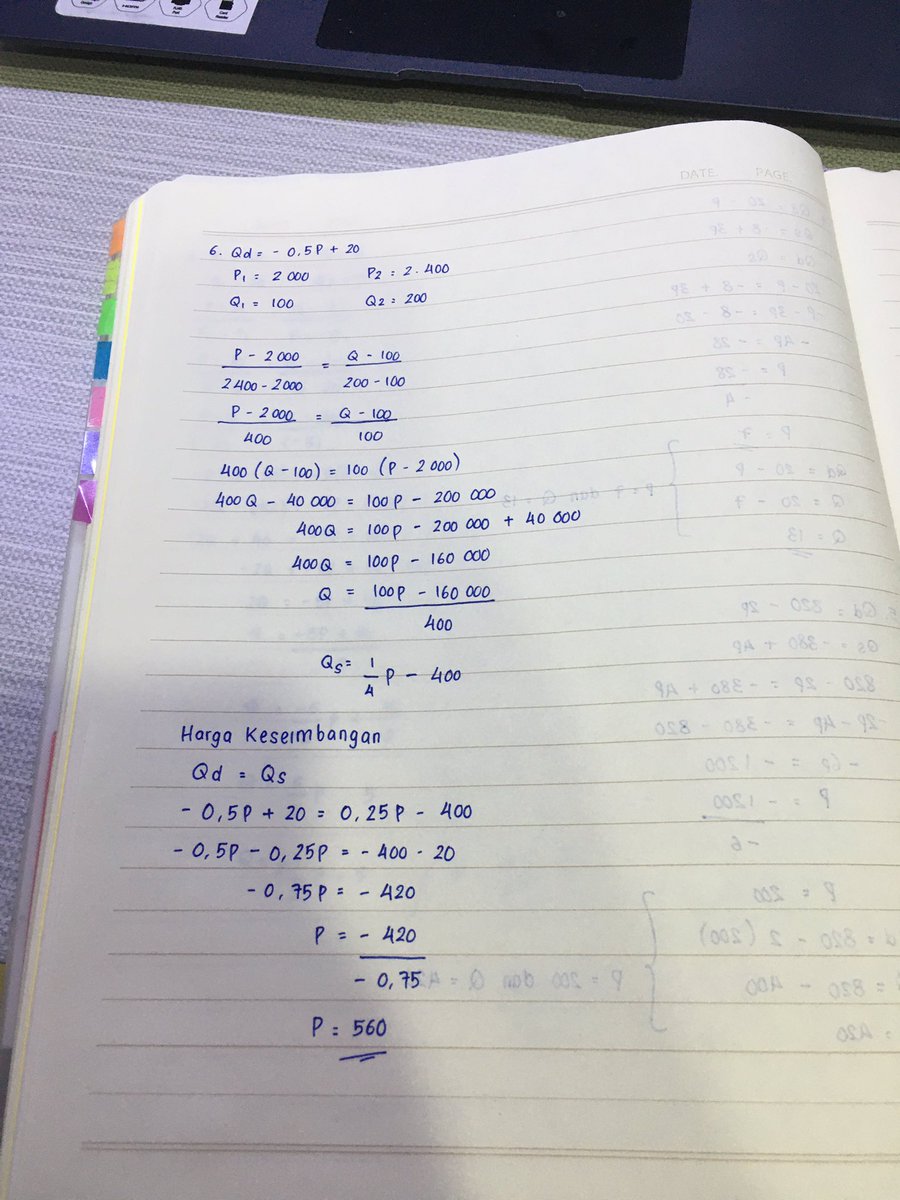 DATE PAGE
6. Qd = - 0,5P + 20
P1 = 2 000 P2 = 2.400
Q1 = 100 Q2 = 200
P - 2 000 / 2 400 - 2 000 = Q - 100 / 200 - 100
P - 2 000 / 400 = Q - 100 / 100
400 (Q - 100) = 100 (P - 2 000)
400Q - 40 000 = 100P - 200 000
400Q = 100P - 200 000 + 40 000
400Q = 100P - 160 000
Q = 100P - 160 000 / 400
Qs = 1/4 P - 400
Harga Keseimbangan
Qd = Qs
- 0,5P + 20 = 0,25P - 400
- 0,5P - 0,25P = - 400 - 20
- 0,75P = - 420
P = - 420 / - 0,75
P = 560